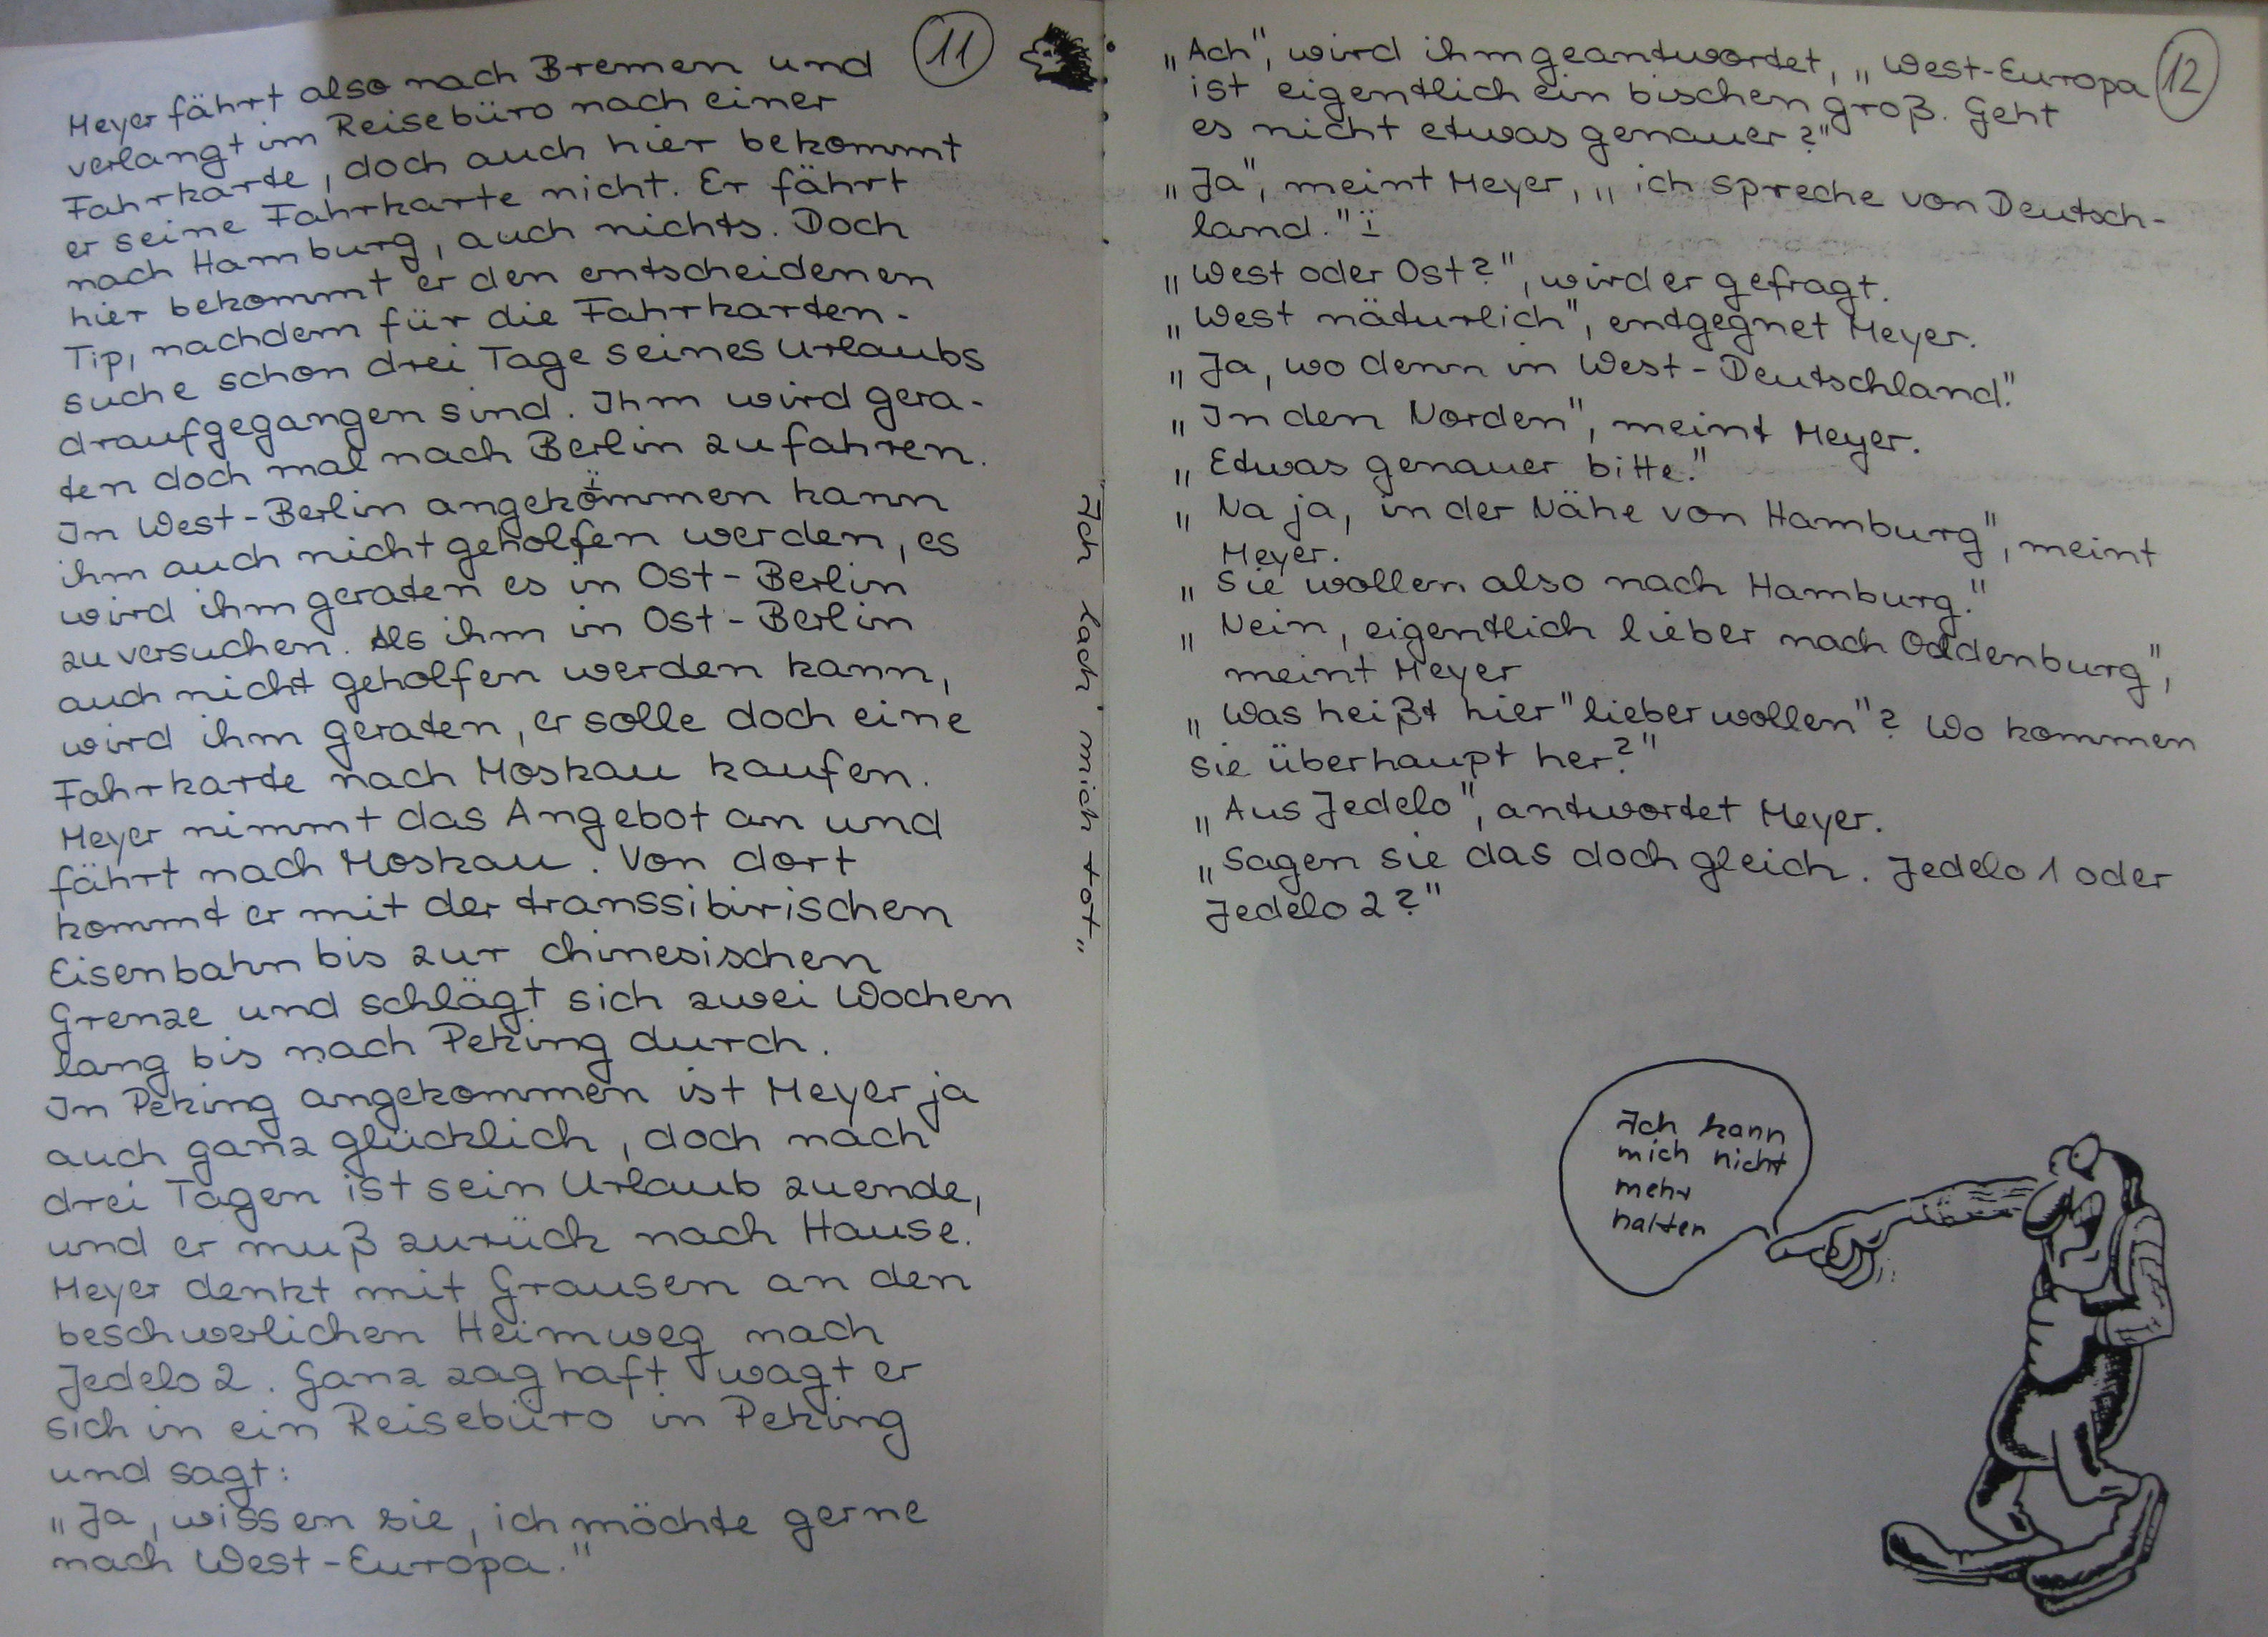 11
Meyer fährt also nach Bremen und
verlangt im Reisebüro nach einer
Fahrkarte, doch auch hier bekommt
er seine Fahrkarte nicht. Er fährt
nach Hamburg, auch nichts. Doch
hier bekommt er den entscheidenen
Tip, nachdem für die Fahrkarten-
suche schon drei Tage seines Urlaubs
draufgegangen sind. Ihm wird gera-
ten doch mal nach Berlin zu fahren.
In West-Berlin angekommen kann
ihm auch nicht geholfen werden, es
wird ihm geraten es in Ost-Berlin
zu versuchen. Als ihm in Ost-Berlin
auch nicht geholfen werden kann,
wird ihm geraten, er solle doch eine
Fahrkarte nach Moskau kaufen.
Meyer nimmt das Angebot an und
fährt nach Moskau. Von dort
kommt er mit der transsibirischen
Eisenbahn bis zur chinesischen
Grenze und schlägt sich zwei Wochen
lang bis nach Peking durch.
In Peking angekommen ist Meyer ja
auch ganz glücklich, doch nach
drei Tagen ist sein Urlaub zuende,
und er muß zurück nach Hause.
Meyer denkt mit Grausen an den
beschwerlichen Heimweg nach
Jedelo 2. Ganz zaghaft wagt er
sich in ein Reisebüro in Peking
und sagt:
„Ja, wissen sie, ich möchte gerne
nach West-Europa."
"Ich lach' mich tot„
12
„Ach", wird ihm geantwortet, „West-Europa
ist eigentlich ein bischen groß. Geht
es nicht etwas genauer?"
„Ja", meint Meyer, „ich spreche von Deutsch-
land."
„West oder Ost?", wird er gefragt.
„West näturlich", entgegnet Meyer.
„Ja, wo denn in West-Deutschland."
„In den Norden", meint Meyer.
„Etwas genauer bitte."
„Na ja, in der Nähe von Hamburg", meint
Meyer.
„Sie wollen also nach Hamburg."
„Nein, eigentlich lieber nach Oldenburg",
meint Meyer
„Was heißt hier "lieber wollen"? Wo kommen
sie überhaupt her?"
„Aus Jedelo", antwortet Meyer.
„Sagen sie das doch gleich. Jedelo 1 oder
Jedelo 2?"
Ich kann
mich nicht
mehr
halten